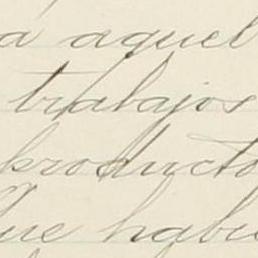 a aquel
trabajos
producto
que habi